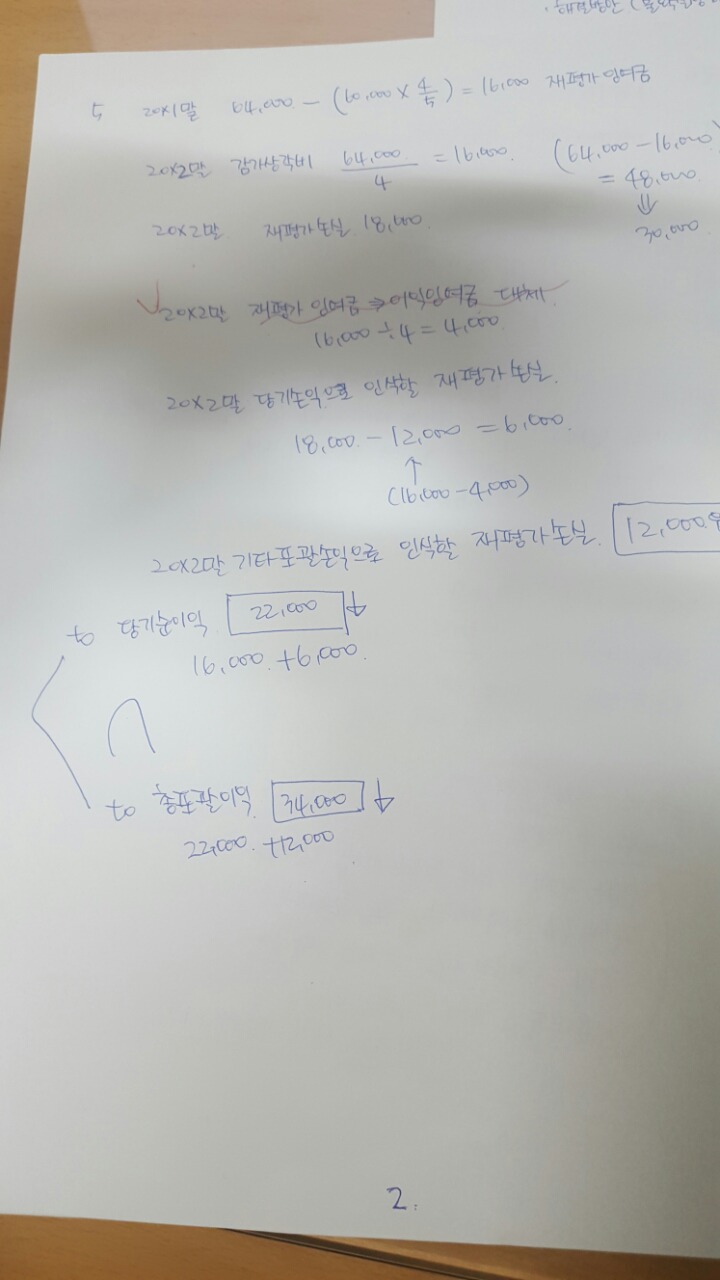 해결방안 (
5 20×1말 64,000 - (60,000 × 4/5) = 16,000 재평가잉여금
20×2말 감가상각비 64,000/4 = 16,000. (64,000 - 16,000)
= 48,000
⇓
30,000
20×2말 재평가손실 18,000.
✓ 20×2말 재평가잉여금 ⇒ 이익잉여금 대체.
16,000 ÷ 4 = 4,000.
20×2말 당기손익으로 인식할 재평가손실.
18,000 - 12,000 = 6,000.
↑
(16,000 - 4,000)
20×2말 기타포괄손익으로 인식할 재평가손실. 12,000원
to 당기순이익 22,000 ↓
16,000. + 6,000.
to 총포괄이익 34,000 ↓
22,000. + 12,000
2.